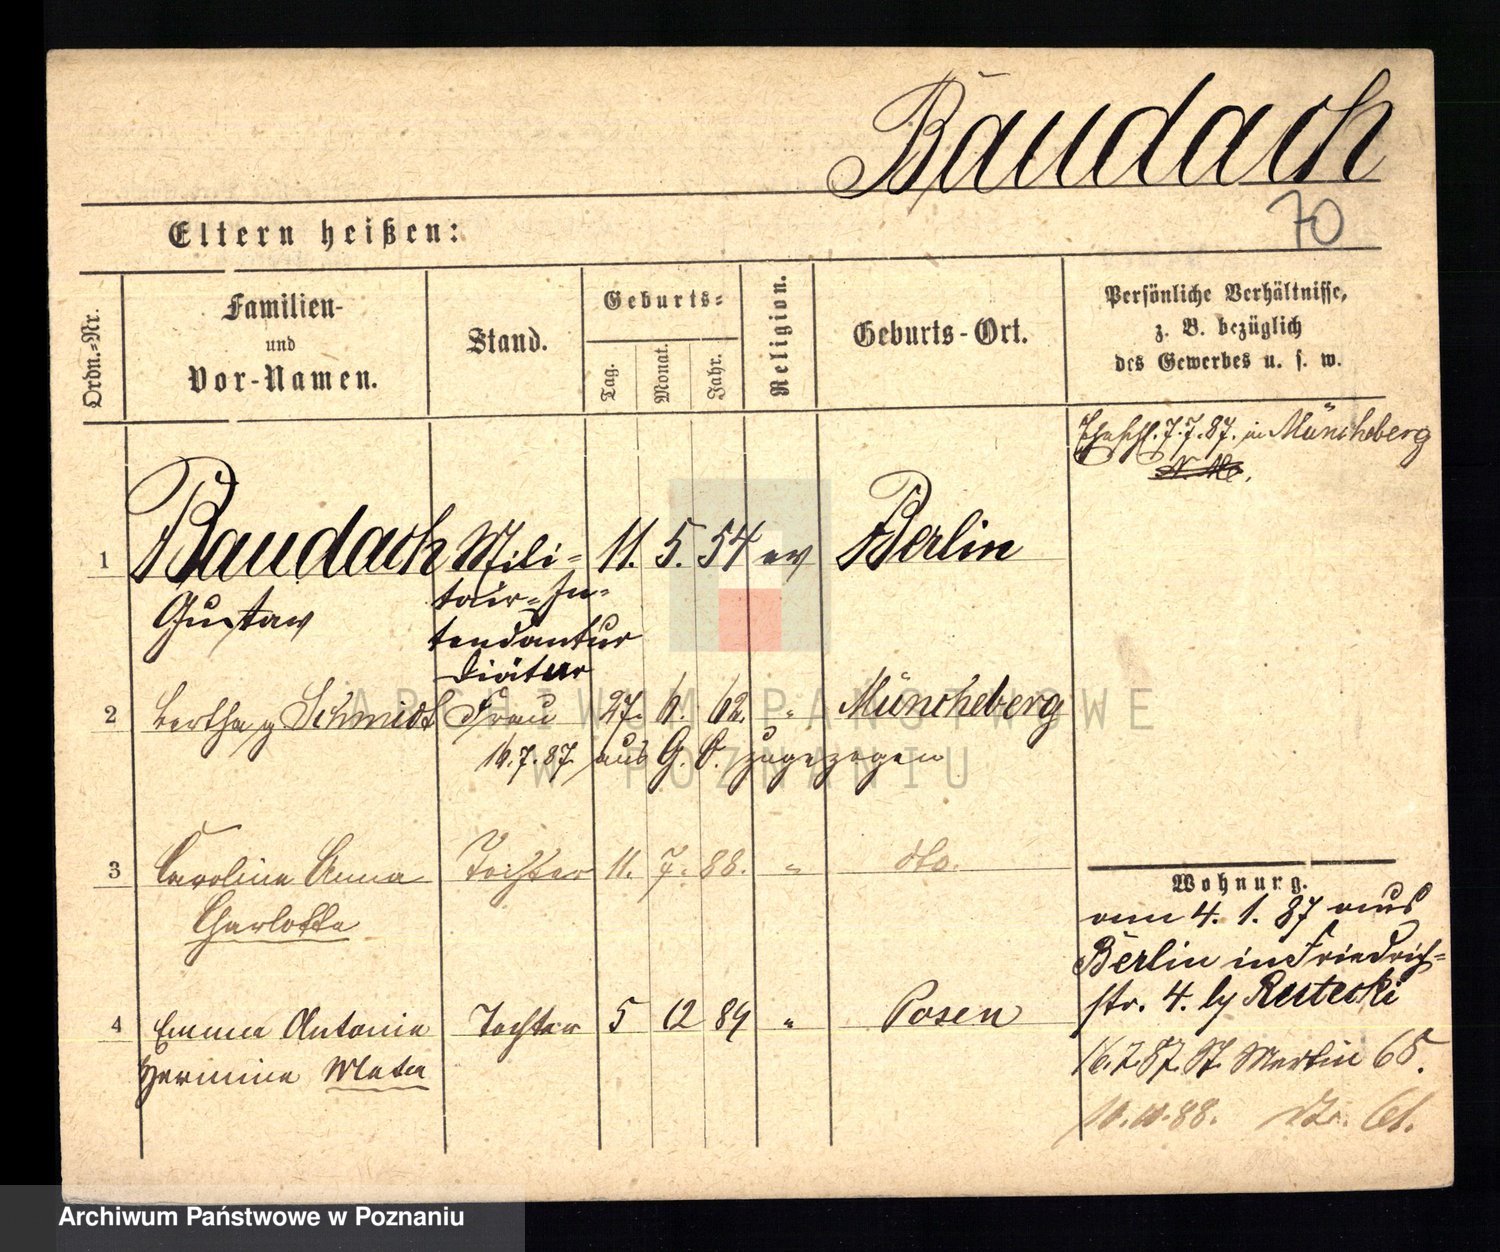 Baudach
70
Eltern heißen:
Ordn.-Nr.
Familien-
und
Vor-Namen.
Stand.
Geburts-
Tag.
Monat.
Jahr.
Religion.
Geburts-Ort.
Persönliche Verhältnisse,
z. B. bezüglich
des Gewerbes u. s. w.
Ehschl. 7.7.87. in Müncheberg
1 Baudach Mili- 11. 5. 54 ev Berlin
Gustav tair-In-
tendantur
Diätar
2 Bertha g Schmidt Frau 27. 6. 62. " Müncheberg
16.7.87. aus G. S. zugezogen
3 Caroline Anna Tochter 11. 7. 88. " dto.
Charlotte
4 Emma Antonie Tochter 5 12 89 " Posen
Hermine Meta
Wohnung.
vom 4. 1. 87 aus
Berlin in Friedrich-
str. 4. by Rutecki
16.7.87. St. Martin 65.
10.10.88. 61.
ARCHIWUM PAŃSTWOWE
W POZNANIU
Archiwum Państwowe w Poznaniu